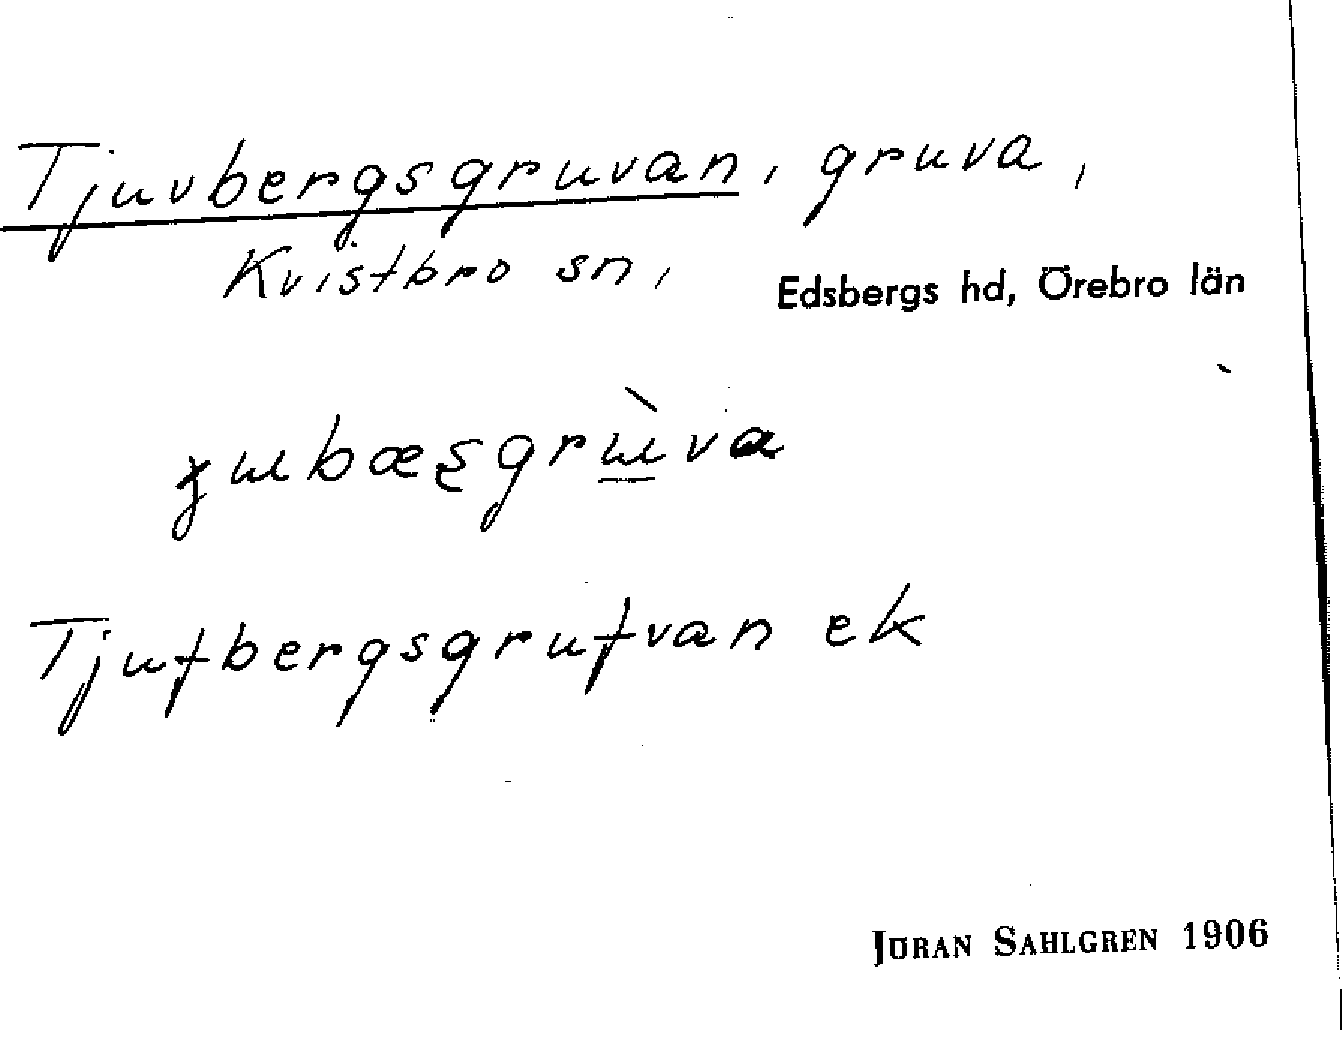 Tjuvbergsgruvan, gruva,
Kvistbro sn, Edsbergs hd, Örebro län
Tjufbergsgrufvan ek
JÖRAN SAHLGREN 1906